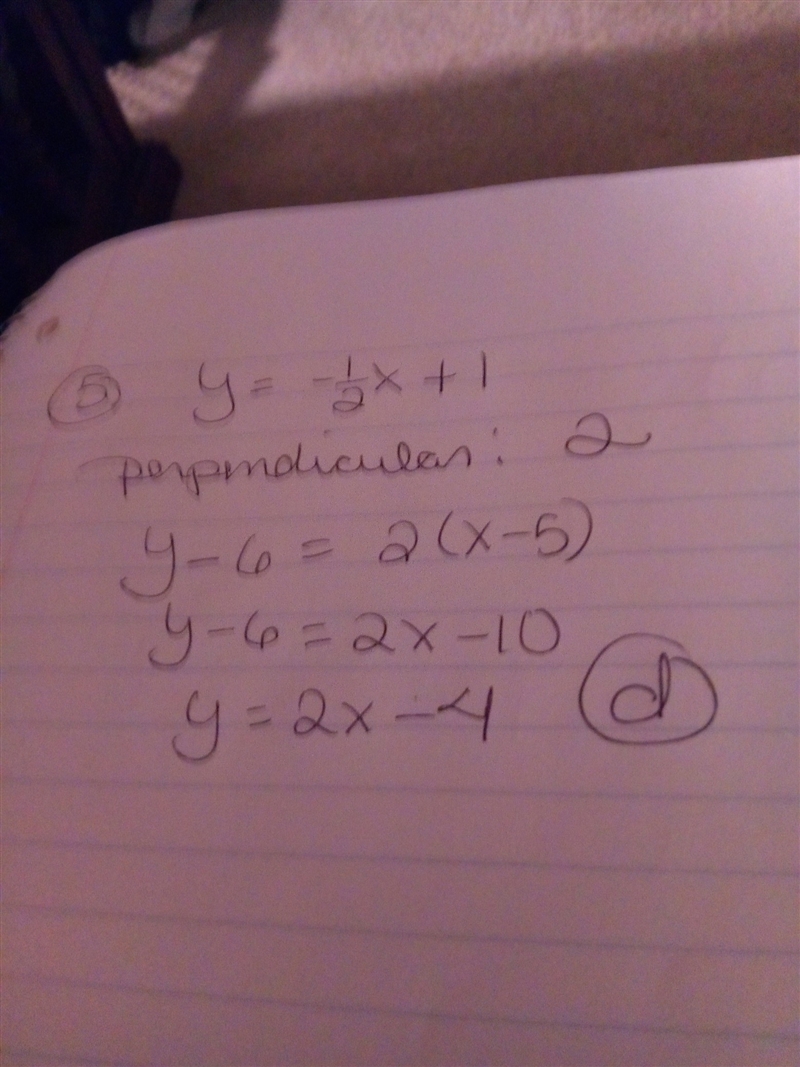 5 y = -1/2x + 1
perpendicular: 2
y - 6 = 2(x - 5)
y - 6 = 2x - 10
y = 2x - 4 d